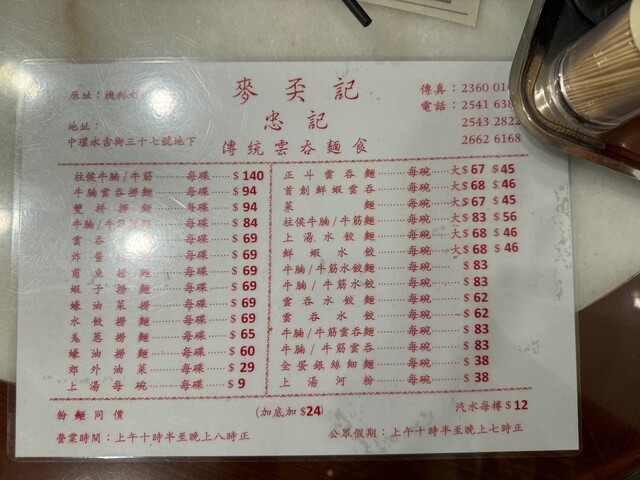 麥奀記
忠記
傳統雲吞麵食
原址：機利文
地址：
中環永吉街三十七號地下
傳真：2360 01
電話：2541 638
2543 2822
2662 6168
柱侯牛腩/牛筋 每碟 $140
牛腩雲吞撈麵 每碟 $94
雙拼撈麵 每碟 $94
牛腩/牛筋撈麵 每碟 $84
雲吞撈麵 每碟 $69
炸醬撈麵 每碟 $69
甫魚撈麵 每碟 $69
蝦子撈麵 每碟 $69
蠔油菜撈 每碟 $69
水餃撈麵 每碟 $69
羗葱撈麵 每碟 $65
蠔油撈麵 每碟 $60
郊外油菜 每碟 $29
上湯每碗 每碟 $9
正斗雲吞麵 每碗 大$67 $45
首創鮮蝦雲吞 每碗 大$68 $46
菜麵 每碗 大$67 $45
柱侯牛腩/牛筋麵 每碗 大$83 $56
上湯水餃麵 每碗 大$68 $46
鮮蝦水餃 每碗 大$68 $46
牛腩/牛筋水餃麵 每碗 $83
牛腩/牛筋水餃 每碗 $83
雲吞水餃麵 每碗 $62
雲吞水餃 每碗 $62
牛腩/牛筋雲吞麵 每碗 $83
牛腩/牛筋雲吞 每碗 $83
全蛋銀絲細麵 每碗 $38
上湯河粉 每碗 $38
粉麵同價 (加底加$24) 汽水每樽 $12
營業時間：上午十時半至晚上八時正 公眾假期：上午十時半至晚上七時正